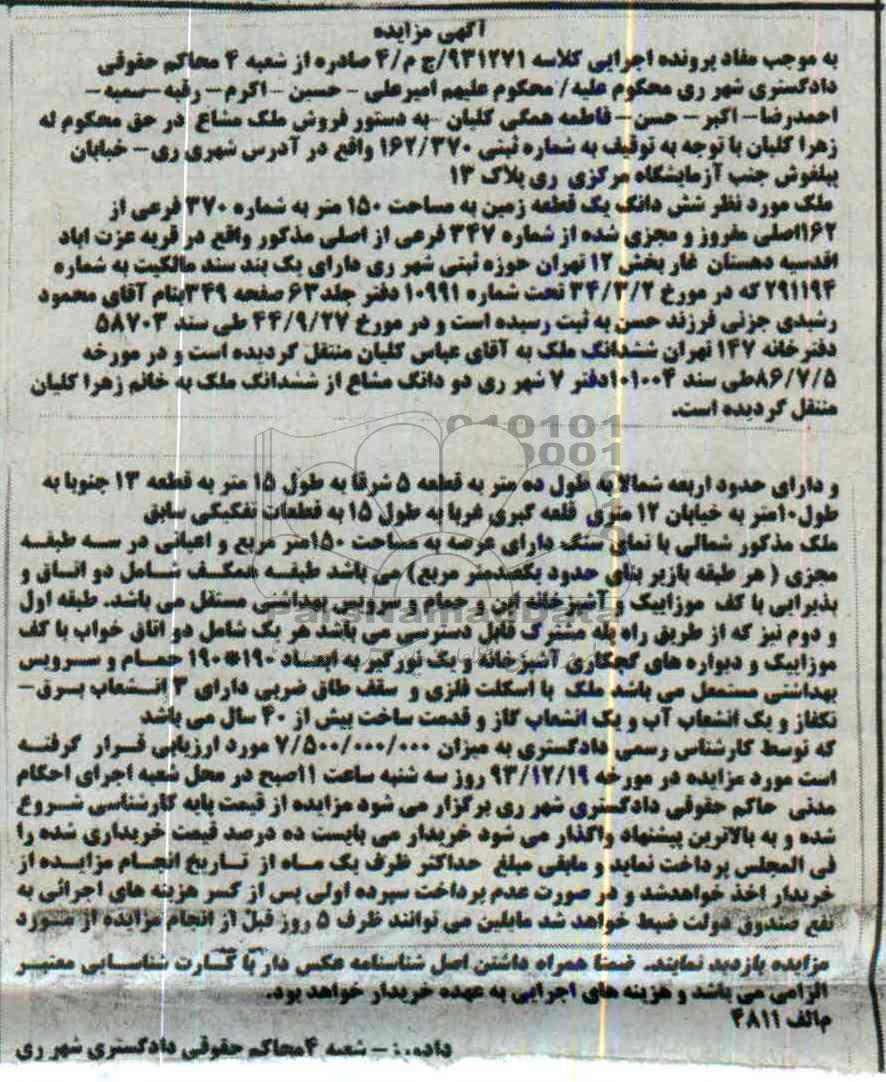 آگهی مزایده
به موجب مفاد پرونده اجرایی کلاسه ۹۳۱۲۷۱/ج م/۴ صادره از شعبه ۴ محاکم حقوقی
دادگستری شهر ری محکوم علیه/ محکوم علیهم امیرعلی - حسین - اکرم- رقیه -سمیه-
احمدرضا- اکبر- حسن- فاطمه همگی کلیان -به دستور فروش ملک مشاع در حق محکوم له
زهرا کلیان با توجه به توقیف به شماره ثبتی ۱۶۲/۳۷۰ واقع در آدرس شهری ری- خیابان
پیلغوش جنب آزمایشگاه مرکزی ری پلاک ۱۳
ملک مورد نظر شش دانگ یک قطعه زمین به مساحت ۱۵۰ متر به شماره ۳۷۰ فرعی از
۱۶۲اصلی مفروز و مجزی شده از شماره ۳۴۷ فرعی از اصلی مذکور واقع در قریه عزت اباد
اقدسیه دهستان غار بخش ۱۲ تهران حوزه ثبتی شهر ری دارای یک بند سند مالکیت به شماره
۲۹۱۱۹۴ که در مورخ ۳۴/۳/۲ تحت شماره ۱۰۹۹۱ دفتر جلد ۶۳ صفحه ۳۴۹بنام آقای محمود
رشیدی جزنی فرزند حسن به ثبت رسیده است و در مورخ ۴۴/۹/۲۷ طی سند ۵۸۷۰۳
دفترخانه ۱۴۷ تهران ششدانگ ملک به آقای عباس کلیان منتقل گردیده است و در مورخه
۸۶/۷/۵طی سند ۱۰۱۰۰۴دفتر ۷ شهر ری دو دانگ مشاع از ششدانگ ملک به خانم زهرا کلیان
منتقل گردیده است.
و دارای حدود اربعه شمالا به طول ده متر به قطعه ۵ شرقا به طول ۱۵ متر به قطعه ۱۳ جنوبا به
طول۱۰متر به خیابان ۱۲ متری قلعه گبری غربا به طول ۱۵ به قطعات تفکیکی سابق
ملک مذکور شمالی با نمای سنگ دارای عرصه به مساحت ۱۵۰متر مربع و اعیانی در سه طبقه
مجزی ( هر طبقه بازیر بنای حدود یکصدمتر مربع) می باشد طبقه همکف شامل دو اتاق و
پذیرایی با کف موزاییک و آشپزخانه اپن و حمام و سرویس بهداشتی مستقل می باشد. طبقه اول
و دوم نیز که از طریق راه پله مشترک قابل دسترسی می باشد هر یک شامل دو اتاق خواب با کف
موزاییک و دیواره های گچکاری آشپزخانه و یک نورگیر به ابعاد ۱۹۰*۱۹۰ حمام و سرویس
بهداشتی مستعمل می باشد ملک با اسکلت فلزی و سقف طاق ضربی دارای ۳ انشعاب برق-
تکفاز و یک انشعاب آب و یک انشعاب گاز و قدمت ساخت بیش از ۴۰ سال می باشد
که توسط کارشناس رسمی دادگستری به میزان ۷/۵۰۰/۰۰۰/۰۰۰ مورد ارزیابی قرار گرفته
است مورد مزایده در مورخه ۹۳/۱۲/۱۹ روز سه شنبه ساعت ۱۱صبح در محل شعبه اجرای احکام
مدنی حاکم حقوقی دادگستری شهر ری برگزار می شود مزایده از قیمت پایه کارشناسی شروع
شده و به بالاترین پیشنهاد واگذار می شود خریدار می بایست ده درصد قیمت خریداری شده را
فی المجلس پرداخت نماید و مابقی مبلغ حداکثر ظرف یک ماه از تاریخ انجام مزایده از
خریدار اخذ خواهدشد و در صورت عدم پرداخت سپرده اولی پس از کسر هزینه های اجرائی به
نفع صندوق دولت ضبط خواهد شد مایلین می توانند ظرف ۵ روز قبل از انجام مزایده از مورد
مزایده بازدید نمایند. ضمنا همراه داشتن اصل شناسنامه عکس دار یا کارت شناسایی معتبر
الزامی می باشد و هزینه های اجرایی به عهده خریدار خواهد بود.
م/الف ۴۸۱۱
شعبه ۴محاکم حقوقی دادگستری شهر ری
ParsNamadData